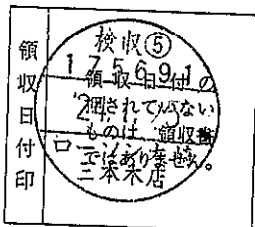 領収日付印
検収⑤
175691
領収日付の
押されてない
ものは 領収書
ではありません。
ローソン
三本木店